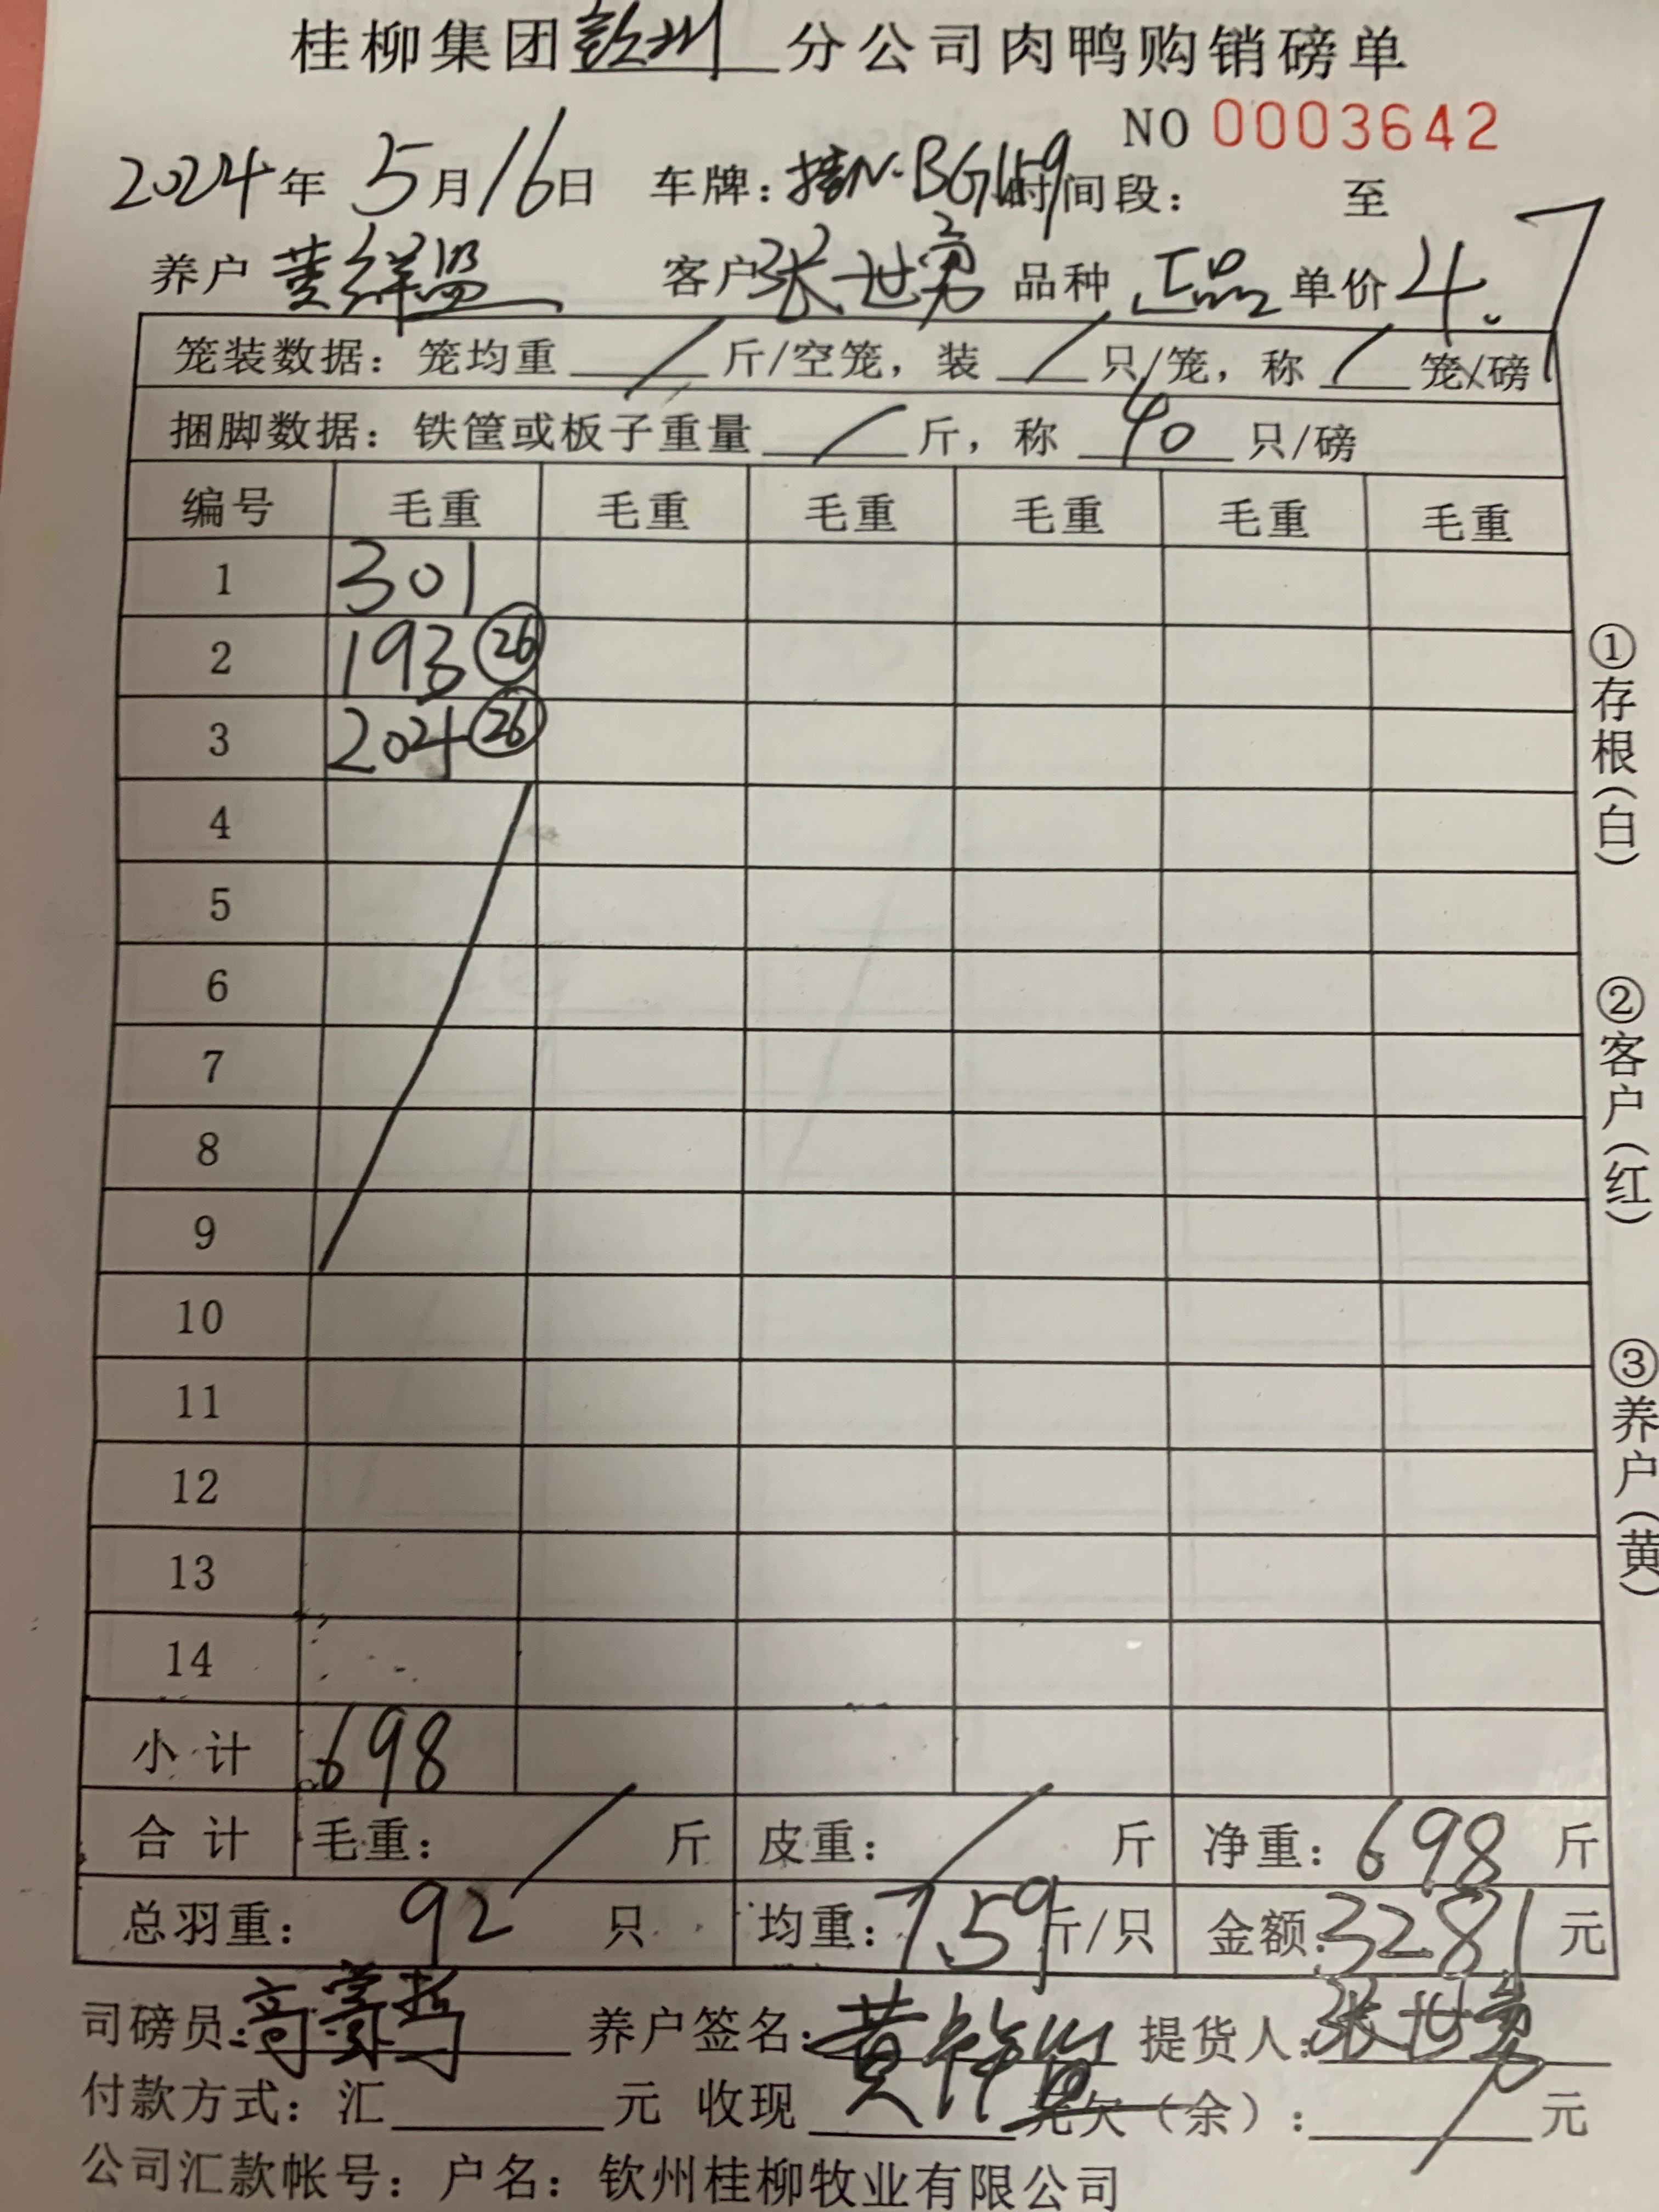 桂柳集团钦州分公司肉鸭购销磅单
NO 0003642
2024年 5月16日 车牌:桂N·BG159 时间段: 至
养户 黄 客户 张世勇 品种 正品 单价 4.7
笼装数据:笼均重 / 斤/空笼,装 / 只/笼,称 / 笼/磅
捆脚数据:铁筐或板子重量 / 斤,称 40 只/磅
编号 毛重 毛重 毛重 毛重 毛重 毛重
1 301
2 193 ㉖
3 204 ㉖
4
5
6
7
8
9
10
11
12
13
14
小计 698
合计 毛重: / 斤 皮重: / 斤 净重: 698 斤
总羽重: 92 只 均重: 7.59 斤/只 金额: 3281 元
司磅员: 养户签名: 黄 提货人: 张世勇
付款方式:汇 元 收现 元欠(余): / 元
公司汇款帐号:户名:钦州桂柳牧业有限公司
①存根(白)
②客户(红)
③养户(黄)